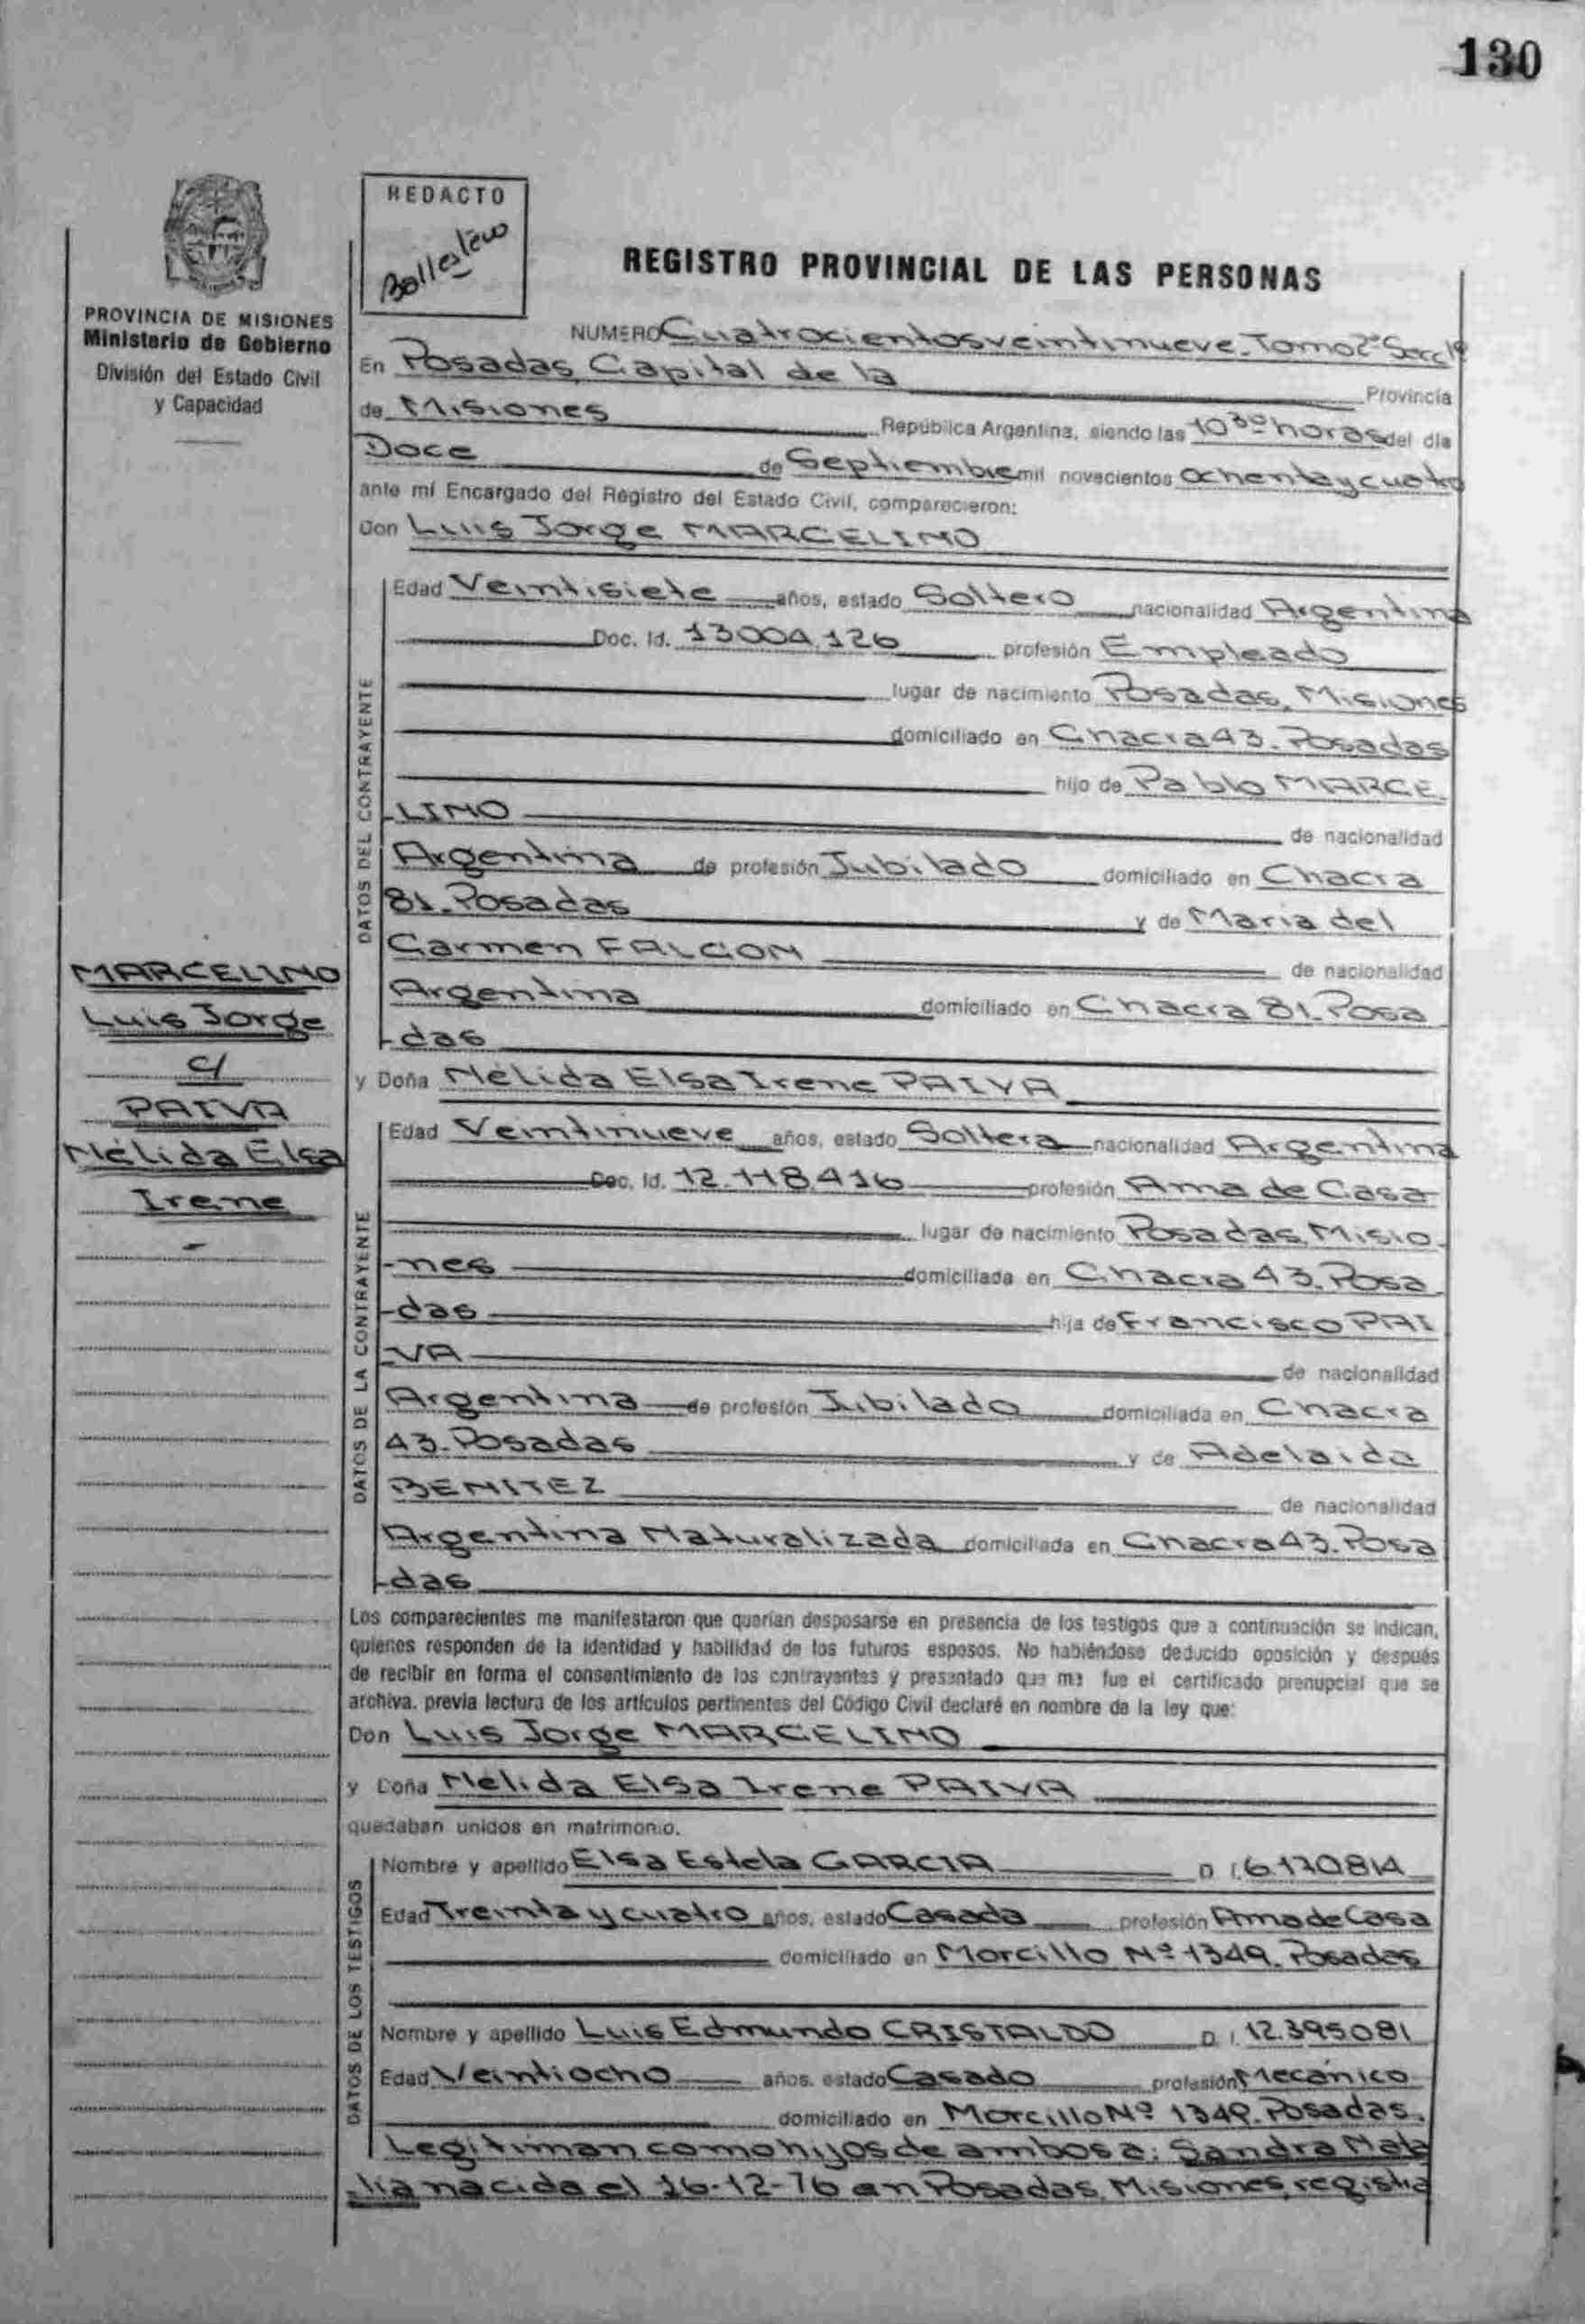 130
REDACTO
Ballestero
REGISTRO PROVINCIAL DE LAS PERSONAS
PROVINCIA DE MISIONES
Ministerio de Gobierno
División del Estado Civil
y Capacidad
NUMERO Cuatrocientosveintinueve. Tomo 2º Secc 1ª
En Posadas, Capital de la Provincia
de Misiones República Argentina, siendo las 10 30 horas del día
Doce de Septiembre mil novecientos ochenta y cuatro
ante mí Encargado del Registro del Estado Civil, comparecieron:
Don Luis Jorge MARCELINO
DATOS DEL CONTRAYENTE
Edad Veintisiete años, estado Soltero nacionalidad Argentina
Doc. Id. 13004.126 profesión Empleado
lugar de nacimiento Posadas, Misiones
domiciliado en Chacra 43. Posadas
hijo de Pablo MARCE
-LINO de nacionalidad
Argentina de profesión Jubilado domiciliado en Chacra
81. Posadas y de Maria del
Carmen FALCON de nacionalidad
Argentina domiciliado en Chacra 81. Posa
-das
MARCELINO
Luis Jorge
c/
PAIVA
Nélida Elsa
Irene
-
y Doña Nélida Elsa Irene PAIVA
DATOS DE LA CONTRAYENTE
Edad Veintinueve años, estado Soltera nacionalidad Argentina
Doc. Id. 12.118.416 profesión Ama de Casa
lugar de nacimiento Posadas, Misio
-nes domiciliada en Chacra 43. Posa
-das hija de Francisco PAI
-VA de nacionalidad
Argentina de profesión Jubilado domiciliada en Chacra
43. Posadas y de Adelaida
BENITEZ de nacionalidad
Argentina Naturalizada domiciliada en Chacra 43. Posa
-das
Los comparecientes me manifestaron que querían desposarse en presencia de los testigos que a continuación se indican,
quienes responden de la identidad y habilidad de los futuros esposos. No habiéndose deducido oposición y después
de recibir en forma el consentimiento de los contrayentes y presentado que me fue el certificado prenupcial que se
archiva. previa lectura de los artículos pertinentes del Código Civil declaré en nombre de la ley que:
Don Luis Jorge MARCELINO
y Doña Nélida Elsa Irene PAIVA
quedaban unidos en matrimonio.
DATOS DE LOS TESTIGOS
Nombre y apellido Elsa Estela GARCIA D. I. 6.170814
Edad Treinta y cuatro años, estado Casada profesión Ama de Casa
domiciliado en Morcillo Nº 1349. Posadas
Nombre y apellido Luis Edmundo CRISTALDO D. I. 12.395081
Edad Veintiocho años. estado Casado profesión Mecánico
domiciliado en Morcillo Nº 1349. Posadas.
Legitiman como hijos de ambos a: Sandra Nata
-lia nacida el 16-12-76 en Posadas, Misiones, registra